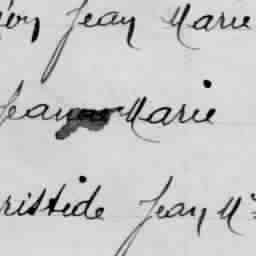 Jean Marie
Jean Marie
ristide Jean M